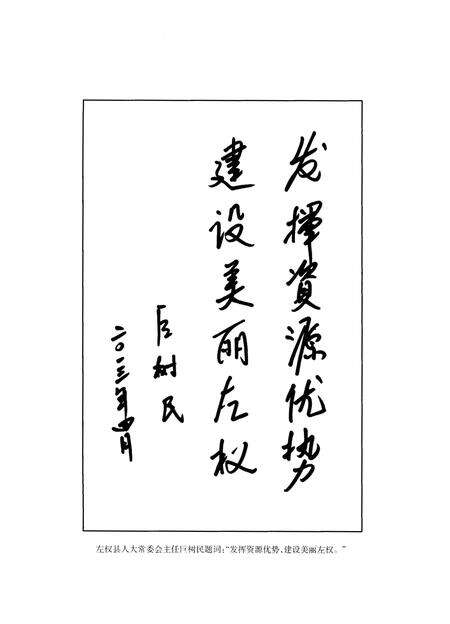 发挥資源优势
建设美丽左权
巨树民
二〇一三年四月
左权县人大常委会主任巨树民题词：“发挥资源优势，建设美丽左权。”